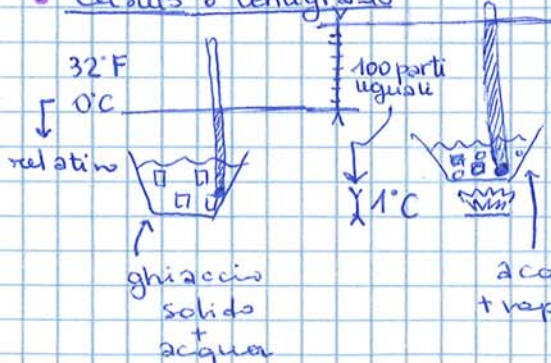 32°F
0°C
relativo
100 parti
uguali
1°C
ghiaccio
solido
+
acqua